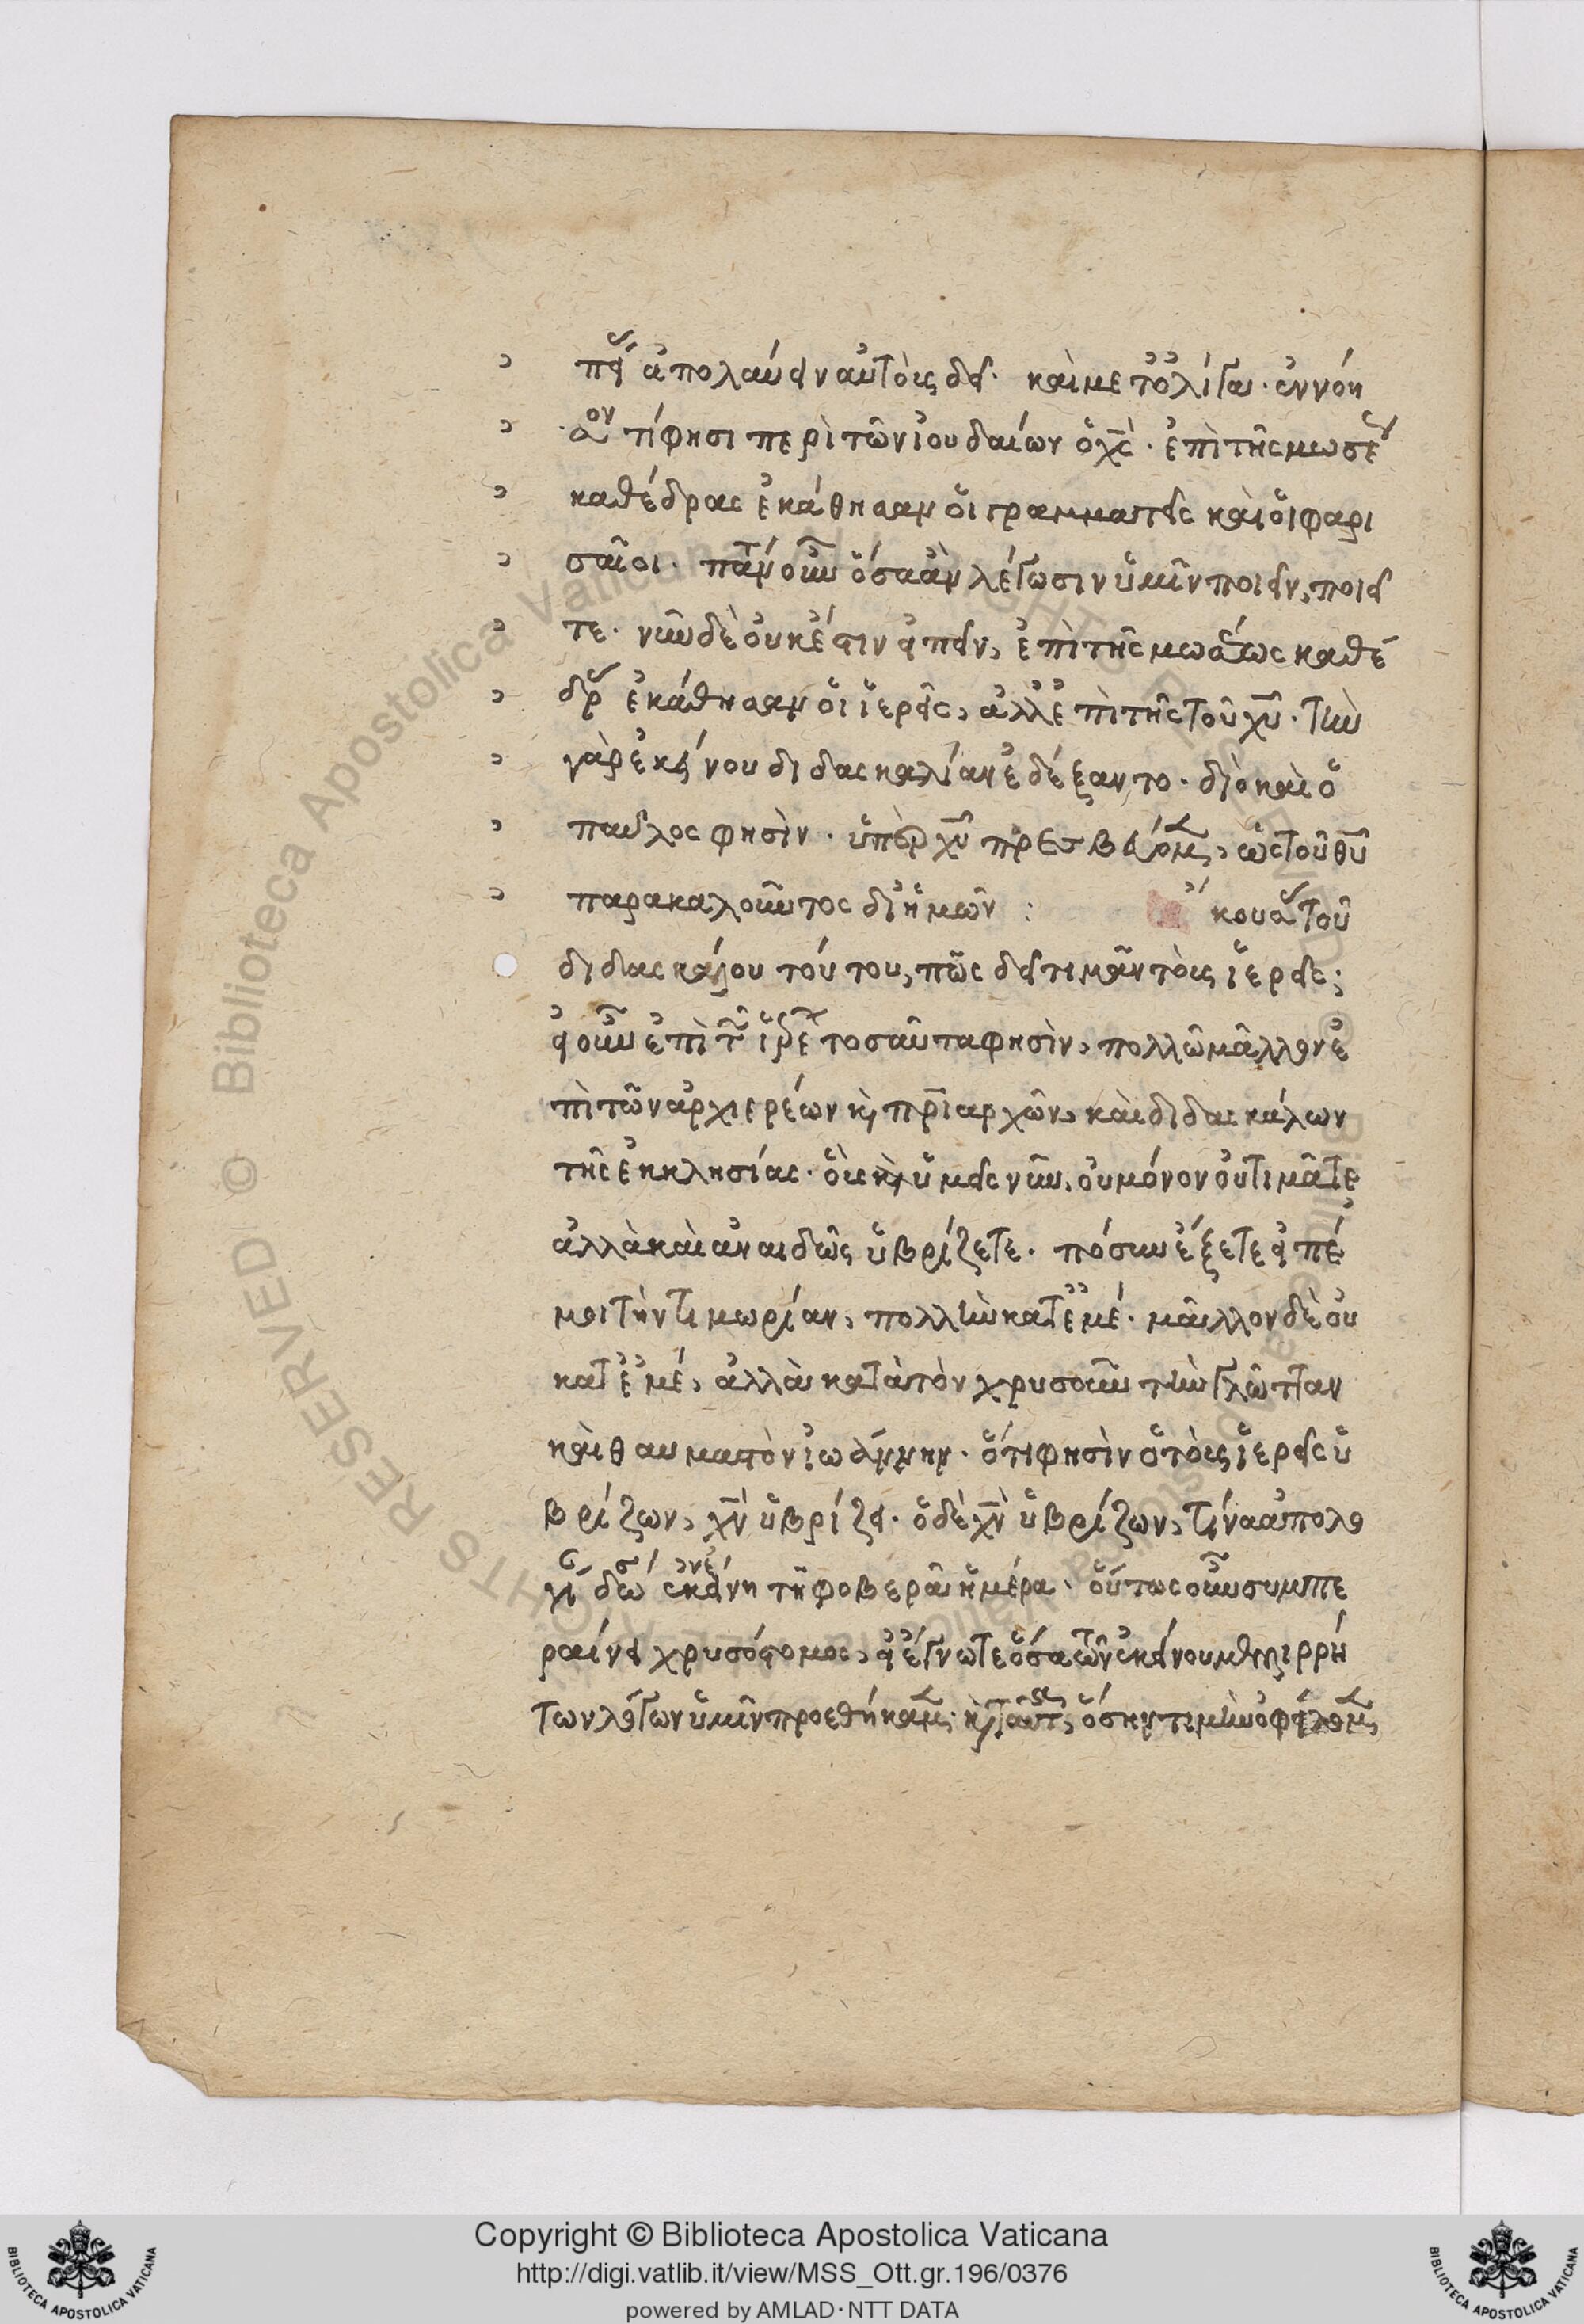 πεί ἀπολαύειν αὐτοὺς δεῖ. καί με τὸ ὀλίγα. ἐννόη
σον τί φησι περὶ τῶν ἰουδαίων ὁ χς. ἐπὶ τῆς μωσέως
καθέδρας ἐκάθησαν οἱ γραμματεῖς καὶ οἱ φαρι
σαῖοι. πάντα οὖν ὅσα ἂν λέγωσιν ὑμῖν ποιεῖν, ποιεῖ
τε. νῦν δὲ οὐκ ἔστιν εἰπεῖν, ἐπὶ τῆς μωσέως καθέ
δρας ἐκάθησαν οἱ ἱερεῖς, ἀλλ' ἐπὶ τῆς τοῦ χυ. τὴν
γὰρ ἐκείνου διδασκαλίαν ἐδέξαντο. διὸ καὶ ὁ
παῦλος φησὶν. ὑπὲρ χυ πρεσβεύομεν, ὡς τοῦ θυ
παρακαλοῦντος δι' ἡμῶν :
κούσατε τοῦ
διδασκάλου τούτου, πῶς δεῖ τιμᾶν τοὺς ἱερεῖς;
εἰ οὖν ἐπὶ τῶν ἱερέων τοσαῦτα φησὶν, πολλῶ μᾶλλον ἐ
πὶ τῶν ἀρχιερέων καὶ πριαρχῶν, καὶ διδασκάλων
τῆς ἐκκλησίας. οὓς καὶ ὑμεῖς νῦν, οὐ μόνον οὐ τιμᾶτε
ἀλλὰ καὶ ἀναιδῶς ὑβρίζετε. πόσην ἕξετε εἴπέ
μοι τὴν τιμωρίαν, πολλὴν κατ' ἐμέ. μᾶλλον δὲ οὐ
κατ' ἐμέ, ἀλλὰ κατὰ τὸν χρυσοῦν τὴν γλῶτταν
καὶ θαυμαστὸν ἰωάννην. ὅτι φησὶν ὁ τοὺς ἱερεῖς ὑ
βρίζων, χν ὑβρίζει. ὁ δὲ χν ὑβρίζων, τίνα ἀπολο
γίαν δώσει ἐν ἐκείνη τῆ φοβερᾶ ἡμέρα. οὕτως οὖν συμπε
ραίνει χρυσόστομος, εἰ ἔγνωτε ὅσα τῶν ἐκείνου μελιρρή
των λόγων ὑμῖν προεθήκαμεν. καὶ ταῦτα, ὅσην τιμὴν ὀφείλομεν